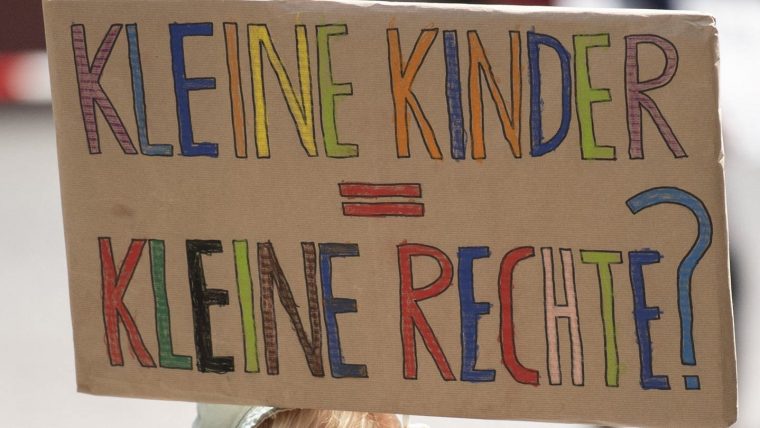 KLEINE KINDER
=
KLEINE RECHTE?